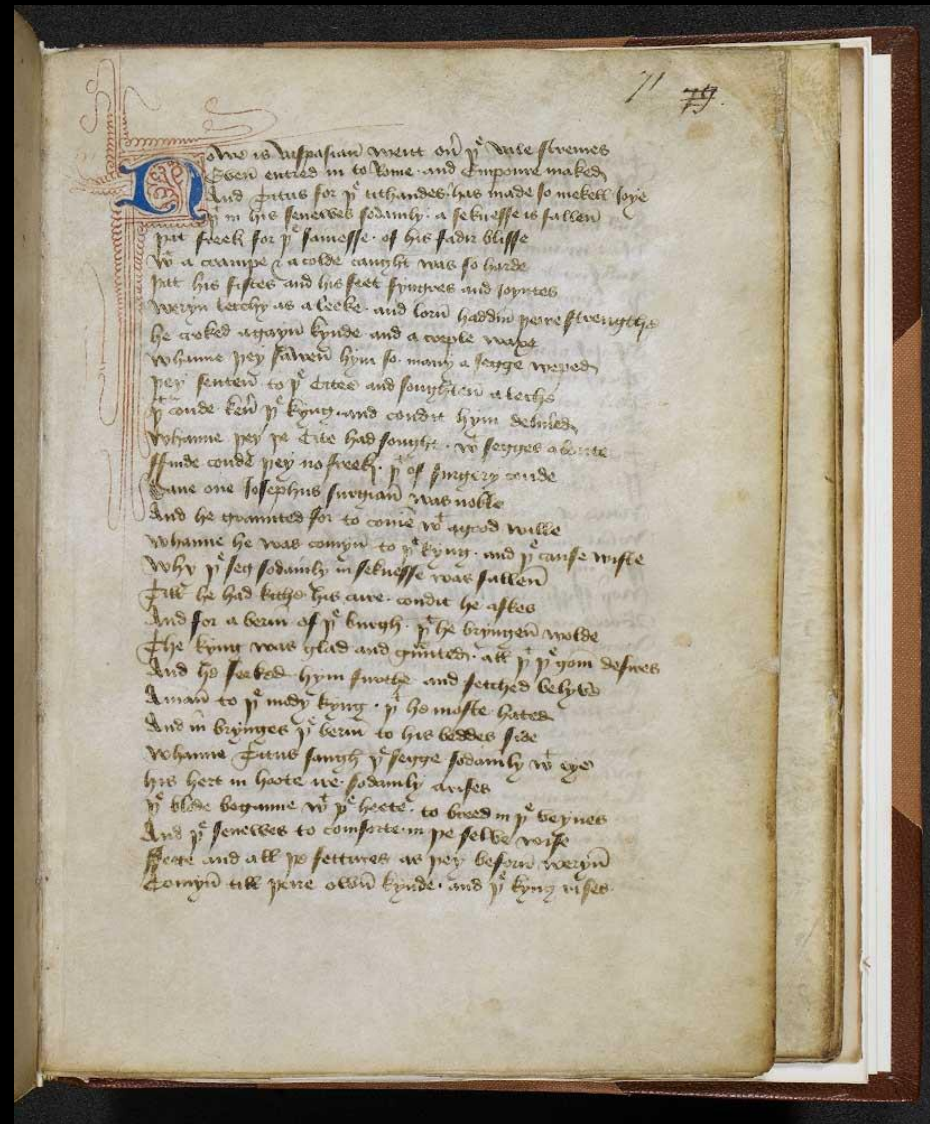 71 79.
Nowe is Vaspasian went ou̅ þe wale stremes
Even entred in to Rome · and Emp̲oure maked
And Titus for þe tithandes has made so mekell Joye
þt in his senewes sodainly · a seknesse is fallen̅
þat freek for þe fainesse · of his fadir blisse
Wt a crampe & a colde caught was so harde
þat his fistes and his feet fyngres and Joyntes
Weryn̅ lethy as a leeke · and lorn̅ haddin̅ þeire strengthe
he croked agayn̅ kynde and a creple waxe
Whanne þey sawen̅ hym so · many a segge weped
þey senten̅ to þe Citee and soughten̅ a leche
þt coude ken̅ þe kyng · and condit hym deliu̅ed
Whanne þey þe Cite had sought · wt segges aboute
ffinde coude þey no freek · þt of surgery coude
Sane one Josephus surgian̅ was noble
And he graunted for to come̅ wt a good wille
Whanne he was comyn̅ to þe kyng · and þe cause wiste
Why þe seg sodainly in seknesse was fallen̅
Till he had kithe his cure · condit he askes
And for a bern̅ of þe burgh · þt he bryngen̅ wolde
The kyng was glad and gra̅nted · all þt þe gom desires
And he seeked hym furthe and fetched belyve
A man̅ to þe mody kyng · þt he moste hated
And in̅ brynges þe bern̅ to his beddes side
Whanne Titus saugh þe segge sodainly wt eye
his hert in hoote ire · sodainly arises
þe blode beganne wt þe heete · to breed in þe veynes
And þe senewes to comforte in þe selve wise
ffeete and all þe fettures as þey beforn̅ weryn̅
Comyn̅ till þeire own̅ kynde · and þe kyng rises